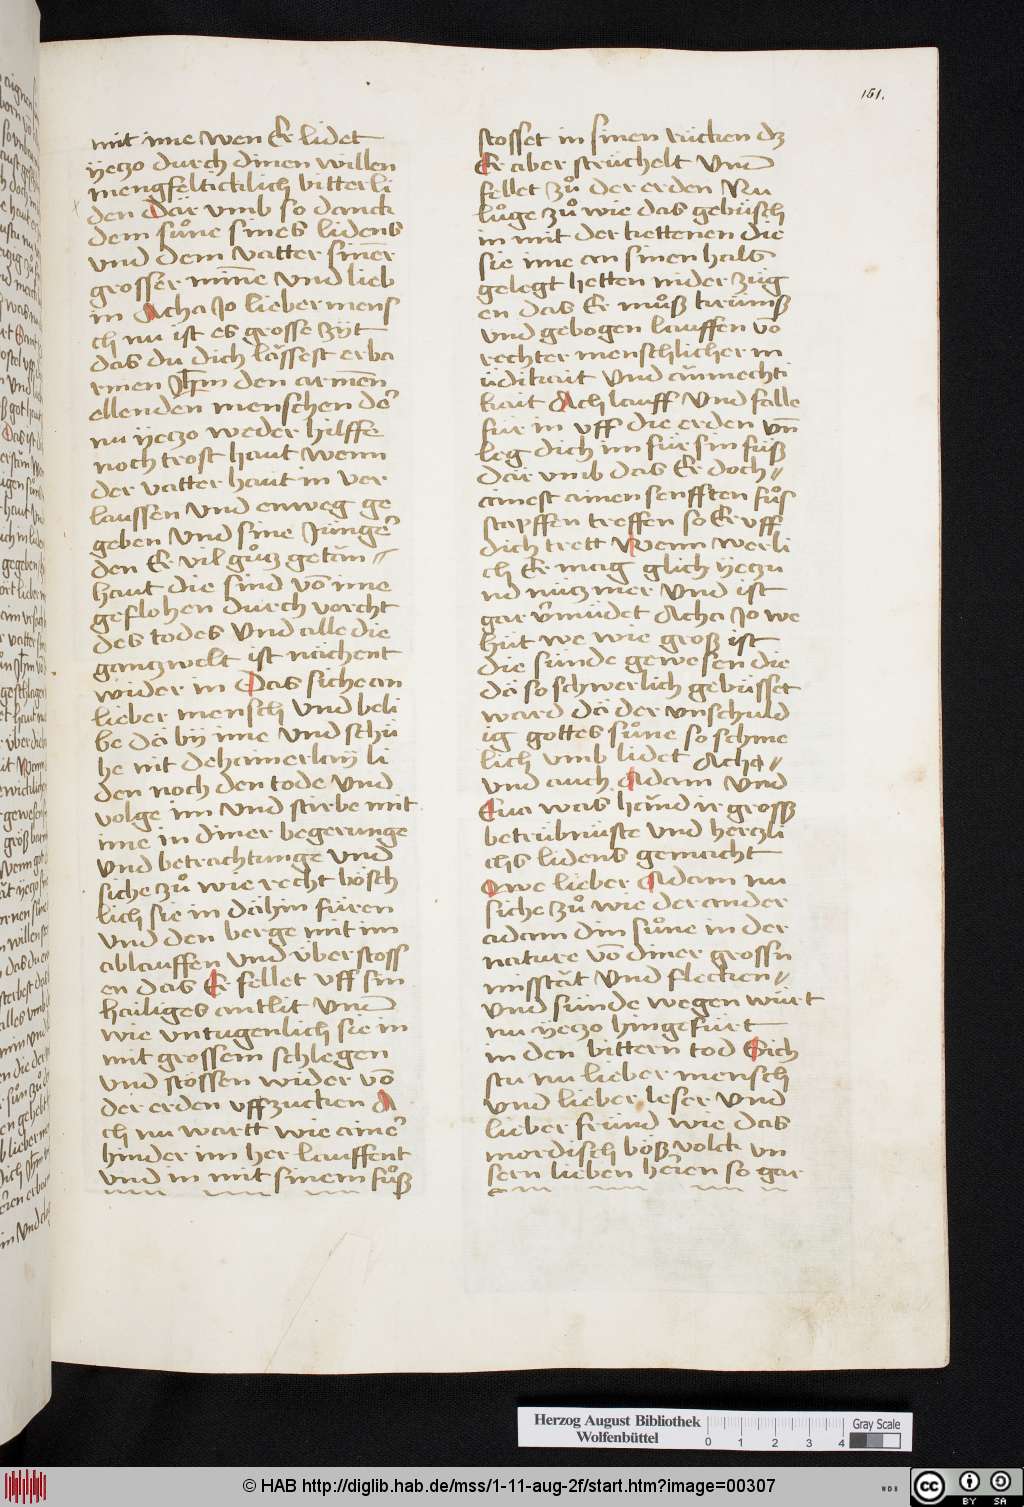 151.
mit ime wen Er lidet
yeczo durch dinen willen
mengfelticklich bitterli
den Dār vmb so danck
dem sůne sines lidens
vnd dem vatter sin̄er
grosser min̄e vnd lieb
in Acha Jo lieber mens
ch nu ist es grosse zyt
das du dich lăssest erba
rmen Jh̄m den armen̄
ellenden menschen der
nu yeczo weder hilffe
noch trost haut wenn
der vatter haut in ver
laussen vnd enweg ge
geben vnd sine Jünger
den Er vil gůcz getăn //
haut die sind vō ime
geflohen durch vorcht
des todes vnd alle die
gancz welt ist nāchent
wider in Das siche an
lieber mensch vnd beli
be dā by ime vnd schü
he nit dehainerlay li
den noch den tode vnd
volge im vnd stirbe mit
ime in diner begerunge
vnd betrachtunge vnd
siche zů wie recht bösch
lich sie in dāhin füren
vnd den berge mit im
ablauffen vnd über stoss
en das Er fellet vff sin
hailiges antlit vnd
wie vntugenlich sie in
mit grossem schlegen
vnd stössen wider vō
der erden vff zucken A
ch nu wartt wie ainer
hinder im her lauffent
vnd in mit sinem fůß
stosset in sinen rücken dz
Er aber strüchelt vnd
fellet zů der erden Nu
lůge zů wie das gebüsch
in mit der kettenen die
sie ime an sinen hals
gelegt hetten nider züg
en das Er můß krümß
vnd gebogen lauffen vō
rechter menschlicher m
üdikait vnd ăn̄mechti
kait Ach lauff vnd falle
für in vff die erden vn̄
leg dich im für sin füß
dār vmb das Er doch //
ainest ainen senfften fůs
stapffen treffen so Er vff
dich trett Wenn werli
ch Er mag glich yeczu
nd nücz mer vnd ist
gar v̄müdet Acha Jo we
hüt we wie groß ist
die sünde gewesen die
dā so schwerlich gebüsset
ward dā der vnschuld
ig gottes sůne so schme
lich vmb lidet Acha //
vnd auch Adam vnd
Eua was hănd ir gross
betrübnüste vnd herczli
chs lidens gemacht
Owe lieber Adam nu
siche zů wie der ander
adam din sůne in der
nature vō diner grossn
misstăt vnd flecken //
vnd sünde wegen würt
nu yeczo hingefürt
in den bittern tod Sich
stu nu lieber mensch
vnd lieber leser vnd
lieber fründ wie das
mordisch böß volck vn
sern lieben herren so gar
Herzog August Bibliothek
Wolfenbüttel
0 1 2 3 4
Gray Scale
© HAB http://diglib.hab.de/mss/1-11-aug-2f/start.htm?image=00307
WDB
CC BY SA